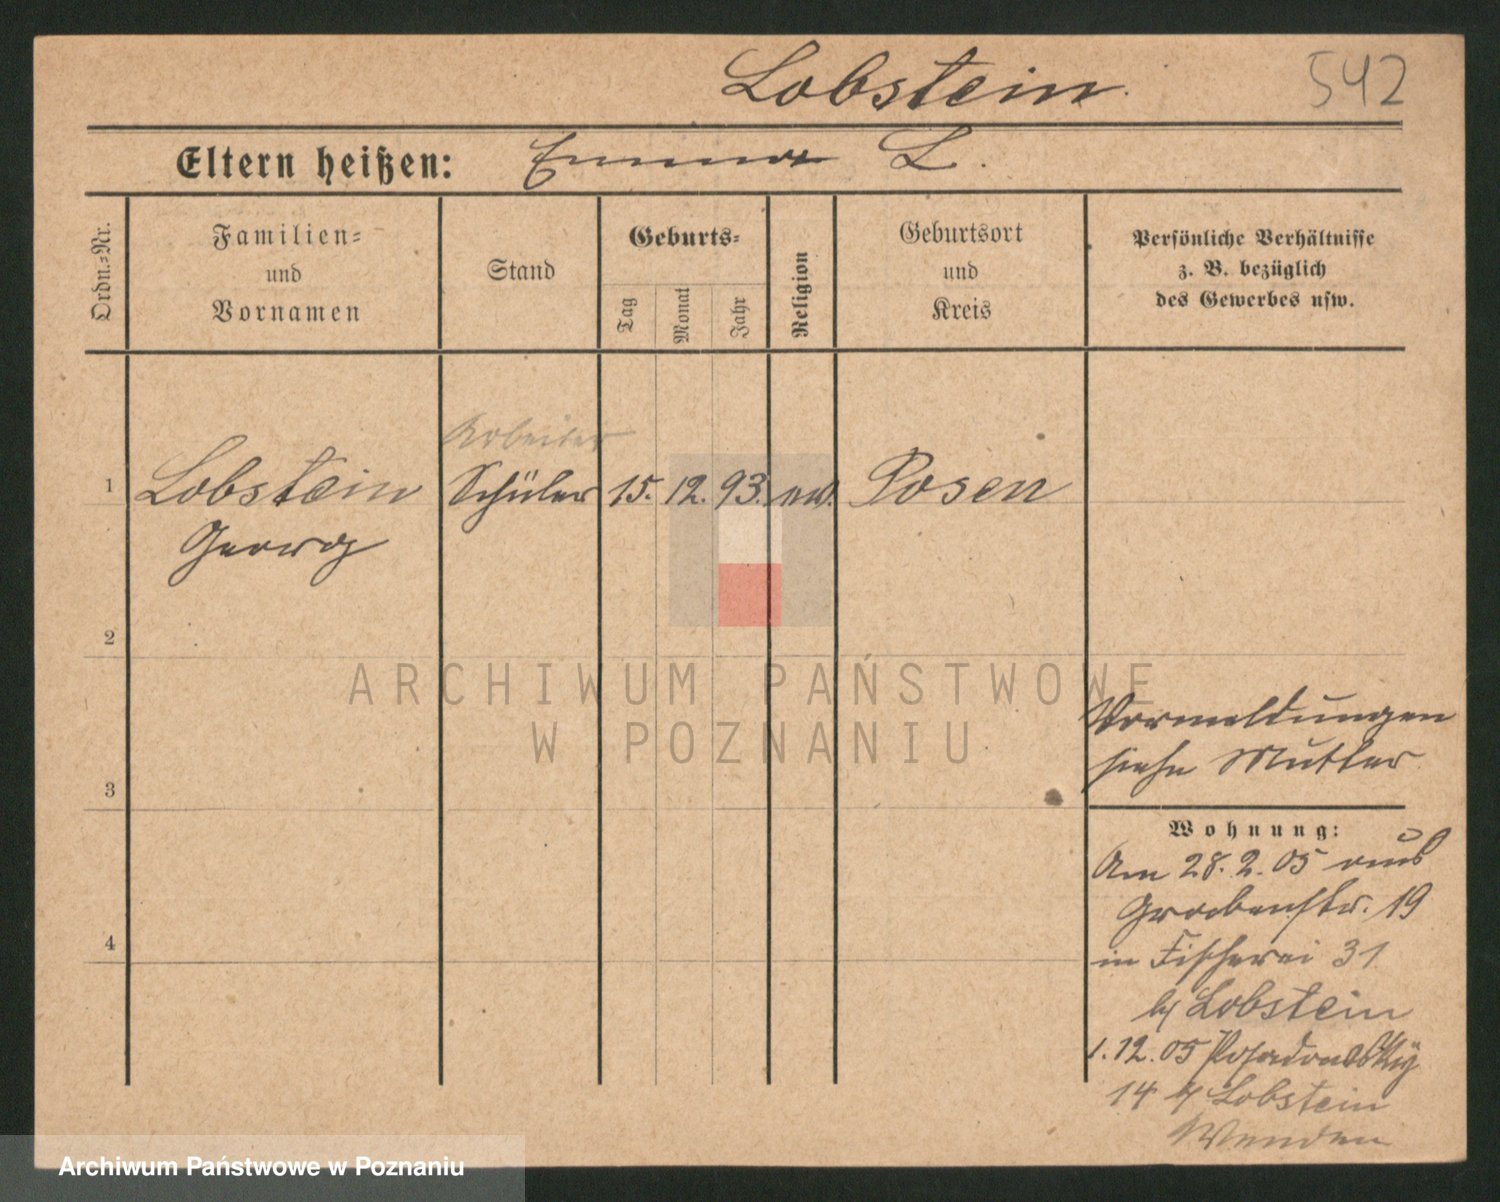 Lobstein. 542
Eltern heißen: Emma L.
Ordn.-Nr.
Familien-
und
Vornamen
Stand
Geburts-
Tag
Monat
Jahr
Religion
Geburtsort
und
Kreis
Persönliche Verhältnisse
z. B. bezüglich
des Gewerbes usw.
Arbeiter
1 Lobstein Schüler 15. 12. 93. ev. Posen
Georg
2
ARCHIWUM PAŃSTWOWE
W POZNANIU
Vormeldungen
siehe Mutter
3
Wohnung:
Am 28.2.05 aus
Grabenstr. 19
4
in Fischerei 31
b/ Lobstein
1.12.05 Posadowsky
14 b/ Lobstein
Archiwum Państwowe w Poznaniu